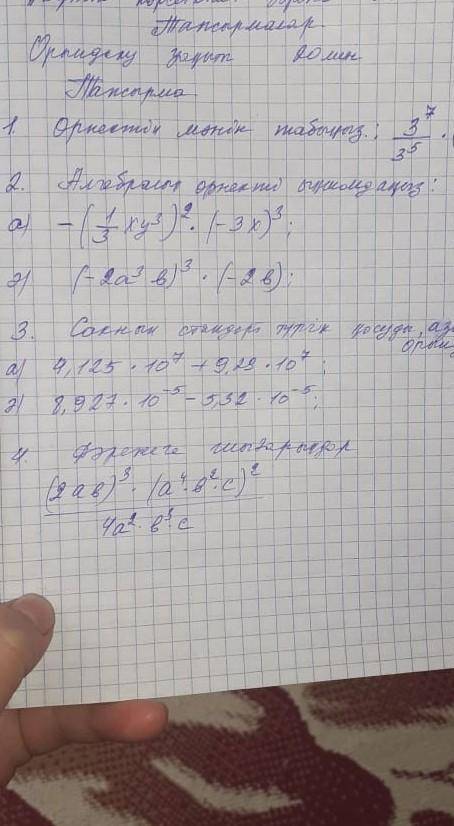 Тапсырмалар
Орындау уақыт 20 мин
Тапсырма
1. Өрнектің мәнін табыңыз: 3^7/3^5 ·
2. Алгебралық өрнекті ықшамдаңыз:
а) -(1/3 xy^3)^2 · (-3x)^3;
ә) (-2a^3 b)^3 · (-2b);
3. Санның стандарт түрін қосуды, аза
орынд
а) 4,125 · 10^7 + 9,29 · 10^7;
ә) 8,927 · 10^-5 - 5,32 · 10^-5;
4. Дәрежеге шығарыңдар
(2ab)^3 · (a^4 · b^2 · c)^2
4a^2 · b^3 · c